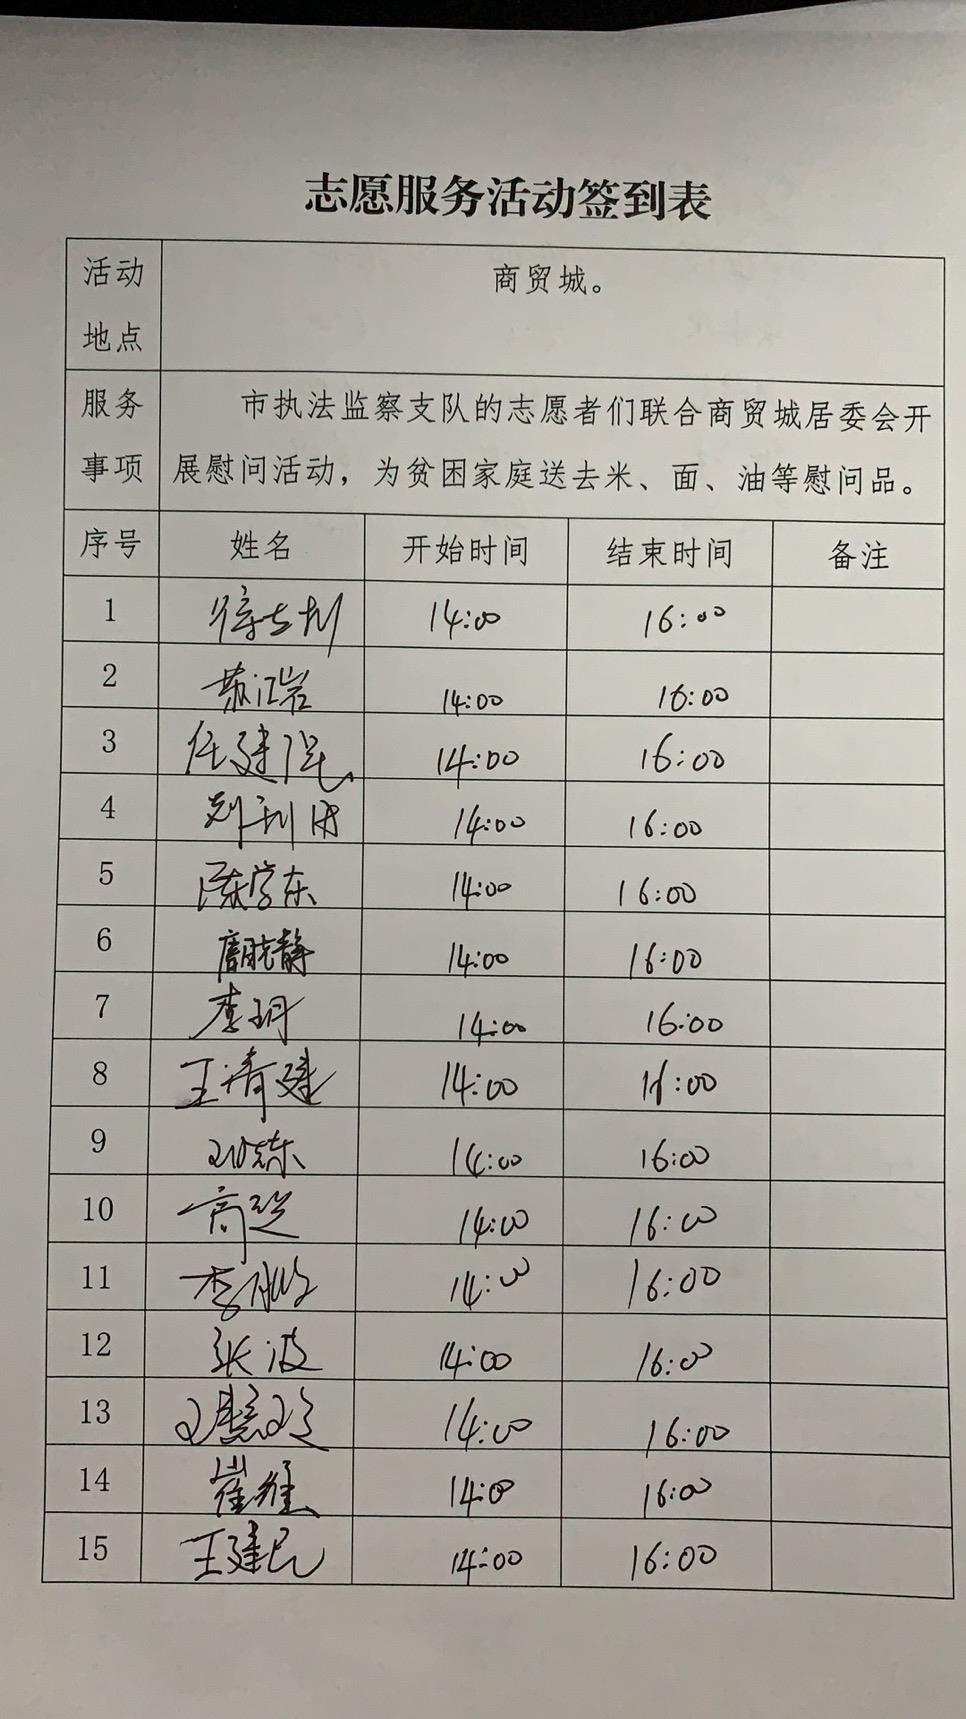 志愿服务活动签到表
活动地点 商贸城。
服务事项 市执法监察支队的志愿者们联合商贸城居委会开
展慰问活动，为贫困家庭送去米、面、油等慰问品。
序号 姓名 开始时间 结束时间 备注
1 14:00 16:00
2 苏江岩 14:00 16:00
3 任建民 14:00 16:00
4 14:00 16:00
5 陈学东 14:00 16:00
6 唐晓静 14:00 16:00
7 李玥 14:00 16:00
8 王清建 14:00 16:00
9 14:00 16:00
10 14:00 16:00
11 14:00 16:00
12 张波 14:00 16:00
13 14:00 16:00
14 崔维 14:00 16:00
15 王建民 14:00 16:00